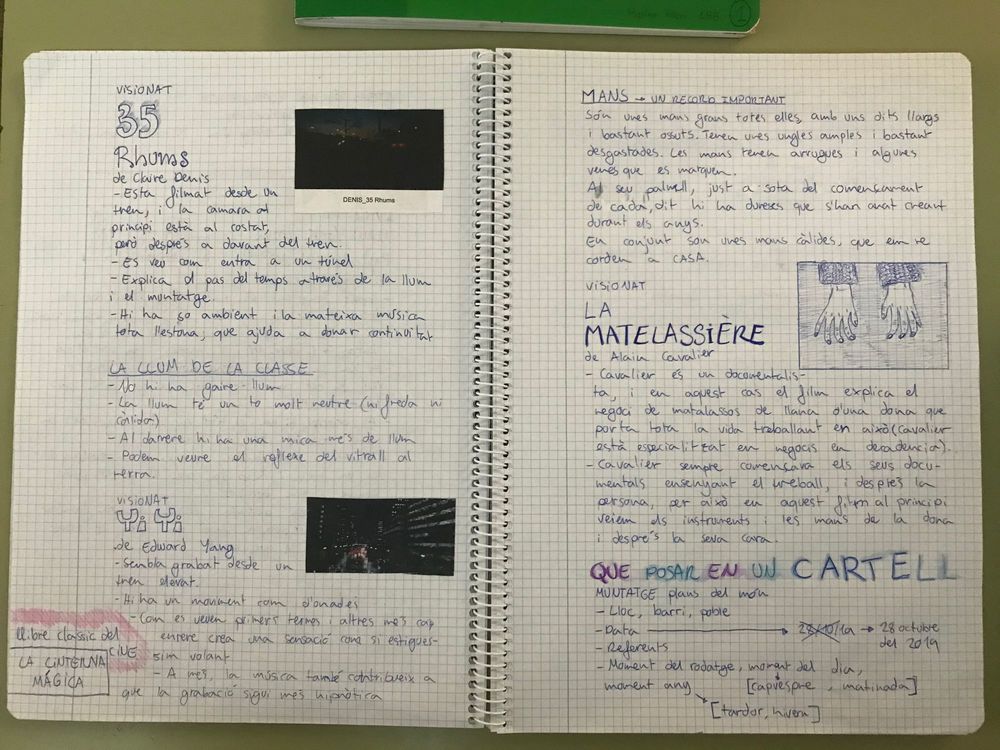 1
VISIONAT
35
Rhums
de Claire Denis
DENIS_35 Rhums
- Esta filmat desde un
tren, i la camara al
principi està al costat,
però després a davant del tren.
- Es veu com entra a un túnel
- Explica el pas del temps através de la llum
i el muntatge.
- Hi ha so ambient i la mateixa música
tota l'estona, que ajuda a donar continuïtat
LA LLUM DE LA CLASSE
- No hi ha gaire llum
- La llum té un to molt neutre (ni freda ni
càlida)
- Al darrere hi ha una mica més de llum
- Podem veure el reflexe del vitrall al
terra.
VISIONAT
Yi Yi
de Edward Yang
- Sembla grabat desde un
tren elevat.
- Hi ha un moviment com d'onades
- Com es veven primers termes i altres més cap
enrere crea una sensació com si estigues-
sim volant
- A més, la música també contribueix a
que la grabació sigui més hipnòtica
llibre classic del
CINE
LA LINTERNA
MÁGICA
MANS → UN RECORD IMPORTANT
Són unes mans grans totes elles, amb uns dits llargs
i bastant ossuts. Tenen unes ungles amples i bastant
desgastades. Les mans tenen arrugues i algunes
venes que es marquen.
Al seu palmell, just a sota del començament
de cada dit hi ha dureses que s'han anat creant
durant els anys.
En conjunt son unes mans càlides, que em re
corden a CASA.
VISIONAT
LA
MATELASSIÈRE
de Alain Cavalier
- Cavalier és un documentalis-
ta, i en aquest cas el film explica el
negoci de matalassos de llana d'una dona que
porta tota la vida treballant en això (Cavalier
està especialitzat en negocis en decadencia).
- Cavalier sempre començava els seus docu-
mentals ensenyant el treball, i després la
persona, per això en aquest film al principi
veiem els instruments i les mans de la dona
i després la seva cara.
QUE POSAR EN UN CARTELL
MUNTATGE plans del món
- Lloc, barri, poble
- Data → 28/10/19 → 28 octubre
del 2019
- Referents
- Moment del rodatge, moment del dia,
moment any [capvespre, matinada]
[tardor, hivern]